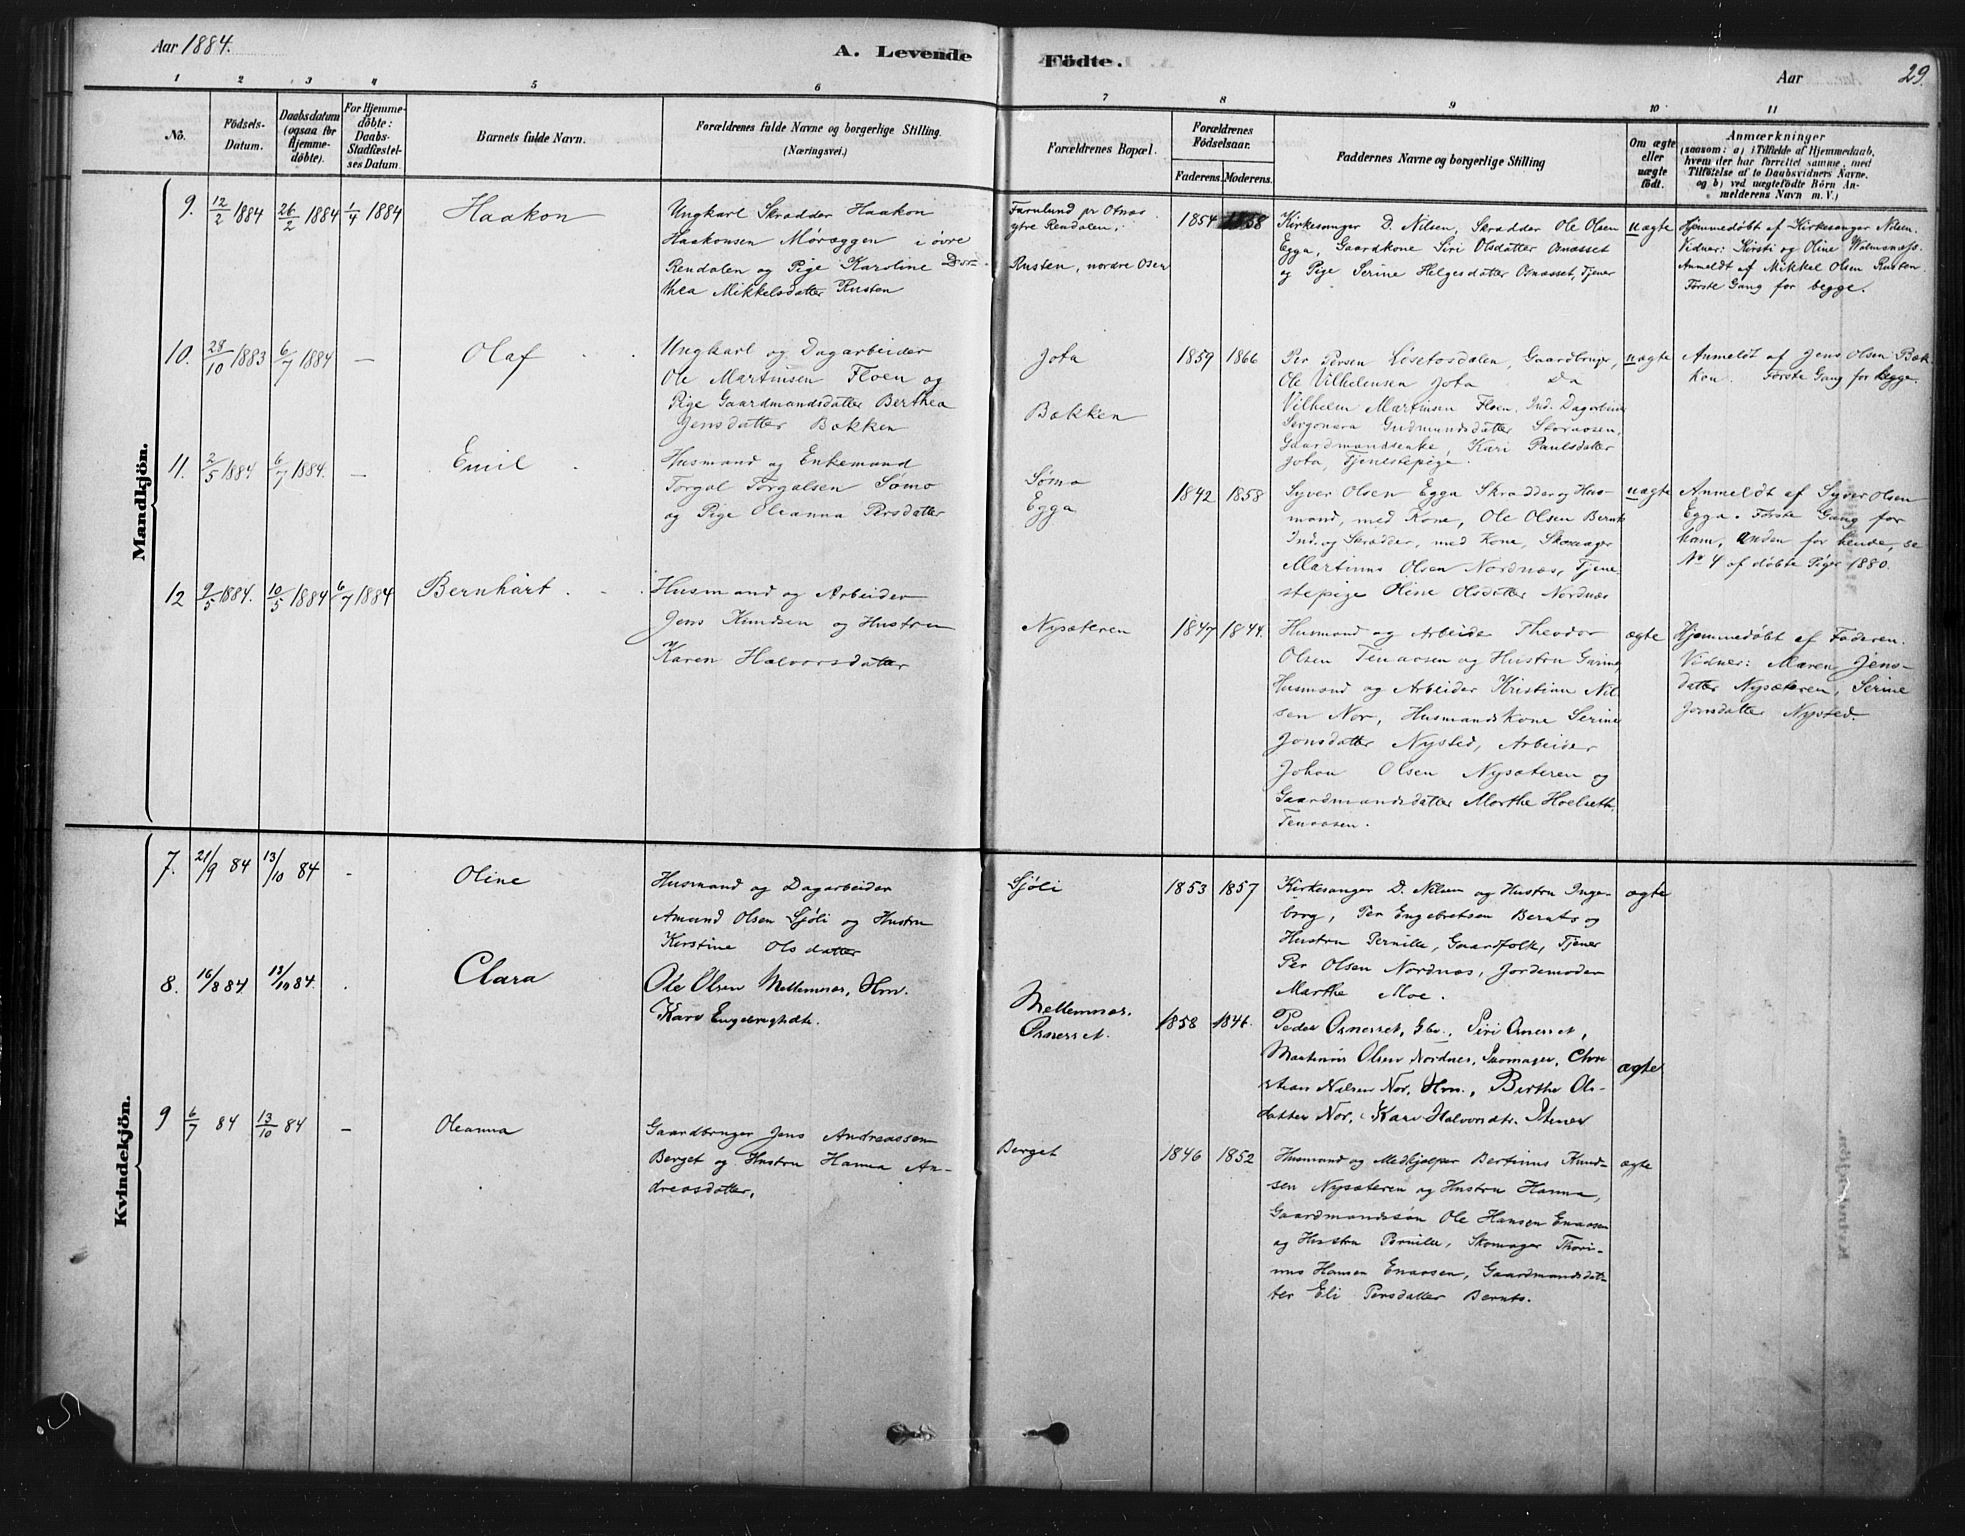 Aar 1884.
A. Levende Födte.
Aar
29.
1 2 3 4 5 6 7 8 9 10 11
No.
Födsels-
Datum.
Daabsdatum
(ogsaa for
Hjemme-
døbte).
For Hjemme-
døbte:
Daabs-
Stadfæstel-
ses Datum.
Barnets fulde Navn.
Forældrenes fulde Navne og borgerlige Stilling.
(Næringsvei.)
Forældrenes Bopæl.
Forældrenes
Fødselsaar.
Faderens. Moderens.
Faddernes Navne og borgerlige Stilling
Om ægte
eller
uægte
födt.
Anmærkninger
(saasom: a) i Tilfælde af Hjemmedaab,
hvem der har forrettet samme, med
Tilföielse af to Daabsvidners Navne.
og b) ved uægtefödte Börn An-
melderens Navn m. V.)
Mandkjön.
9. 12/2 1884 26/2 1884 1/4 1884 Haakon
Ungkarl Skrædder Haakon
Haakonsen Møræggen i øvre
Rendalen og Pige Karoline Dor-
thea Mikkelsdatter Rusten
Farnlund pr Otnæs
ytre Rendalen,
Rusten, nordre Osen
1854 1858
Kirkesanger D. Nilsen, Skrædder Ole Olsen
Egga, Gaardkone Siri Olsdatter Osnæsset
og Pige Serine Helgesdatter Osnæsset, Tjener
uægte
Hjemmedøbt af Kirkesanger Nilsen.
Vidner: Kirsti og Oline
Anmeldt af Mikkel Olsen Rusten
Første Gang for begge.
10. 28/10 1883 6/7 1884 — Olaf
Ungkarl og Dagarbeider
Ole Martinsen Floen og
Pige Gaardmandsdatter Berthea
Jensdatter Bækken
Jota
Bækken
1859 1866
Per Persen Løsetosdalen, Gaardbruger,
Ole Vilhelmsen Jota Do
Vilhelm Martinsen Floen, Ind. Dagarbeider
Gudmundsdatter Storaasen,
Gaardmandsenke, Kari Paulsdatter
Jota, Tjenestepige.
uægte
Anmeldt af Jens Olsen Bæk-
ken. Første Gang for begge.
11. 2/5 1884 6/7 1884. — Emil
Husmand og Enkemand
Torgal Torgalsen Sømo
og Pige Oleanna Persdatter
Sømo
Egga
1842 1858
Syver Olsen Egga Skrædder og Hus-
mand, med Kone, Ole Olsen Bernts
Ind. og Skrædder, med Kone, Skomager
Martinus Olsen Nordnæs, Tjene-
stepige Oline Olsdatter Nordnæs
uægte
Anmeldt af Syver Olsen
Egga. Første Gang for
ham, anden for hende, se
No 4 af døbte Piger 1880.
12 9/5 1884. 10/5 1884 6/7 1884 Bernhart
Husmand og Arbeider
Jens Knudsen og Hustru
Karen Halvorsdatter
Nysæteren
1847 1844.
Husmand og Arbeide Theodor
Olsen Tenaasen og Hustru Gurine,
Husmand og Arbeider Kristian Nil-
sen Nor, Husmandskone Serine
Jonsdatter Nysted, Arbeider
Johan Olsen Nysæteren og
Gaardmandsdatter Marthe
Tenaasen.
ægte
Hjemmedøbt af Faderen.
Vidner: Maren Jens-
datter Nysæteren, Serine
Jonsdatter Nysted.
Kvindekjön.
7. 21/9 84 13/10 84 - Oline
Husmand og Dagarbeider
Amund Olsen Sjöli og Hustru
Kirstine Olsdatter
Sjöli
1853 1857
Kirkesanger D. Nilsen og Hustru Inge-
borg, Per Engebretsen Bernts og
Hustru Pernille, Gaardfolk, Tjener
Per Olsen Nordnæs, Jordemoder
Marthe Moe.
ægte
8. 16/8 84 13/10 84. . Clara
Ole Olsen Mellemnæs, Hm.
Kari Engebrigtsdtr.
Mellemnæs.
Osnesset.
1858 1846.
Peder Osnesset, Gbr., Siri Osnesset,
Martinus Olsen Nordnes, Skomager, Chri-
stian Nilsen Nor, Hm., Birthe Ols-
datter Nor, Kari Halvorsdtr. Stener
ægte
9 6/7 84 13/10 84 — Oleanna
Gaardbruger Jens Andreassen
Berget og Hustru Hanna An-
dreasdatter,
Berget
1846 1852
Husmand og Medhjælper Bertinus Knud-
sen Nysæteren og Hustru Hanna,
Gaardmandssøn Ole Hansen Enaasen
og Hustru Pernille, Skomager Thori-
nus Hansen Enaasen, Gaardmandsdat-
ter Eli Persdatter Bernts.
ægte